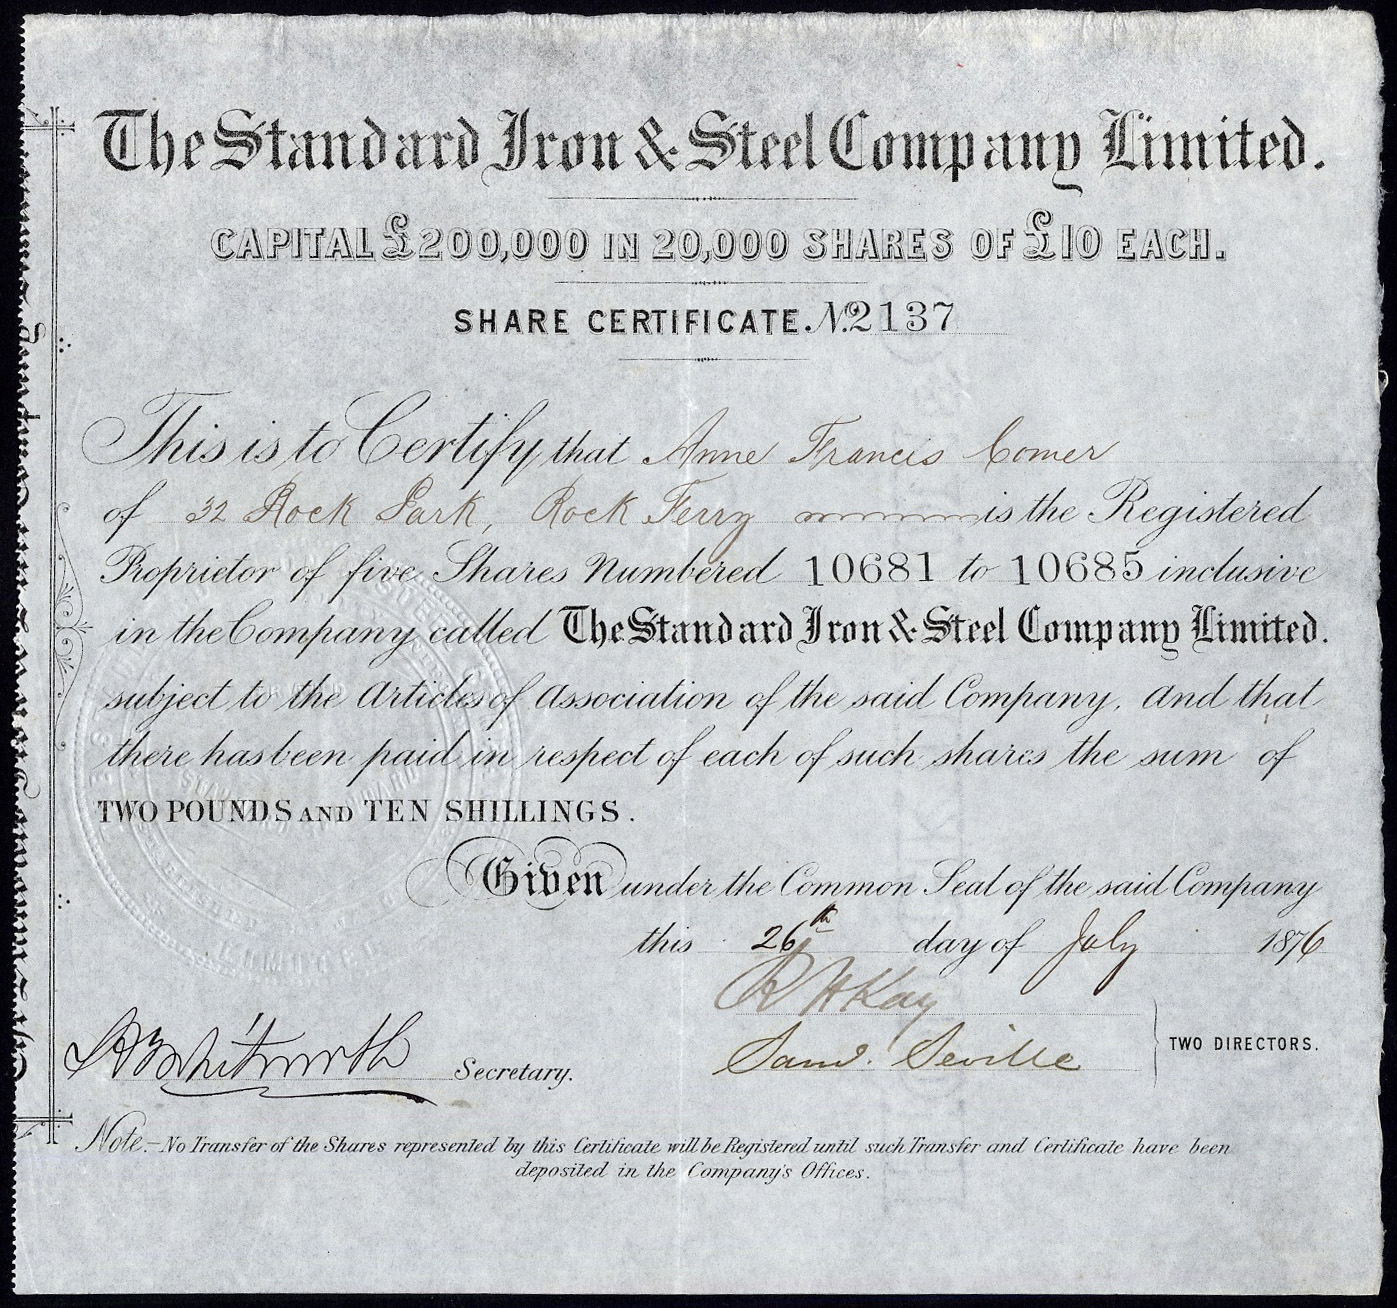 The Standard Iron & Steel Company Limited.
CAPITAL £200,000 IN 20,000 SHARES OF £10 EACH.
SHARE CERTIFICATE. No. 2137
This is to Certify that Anne Francis Comer
of 32 Rock Park, Rock Ferry is the Registered
Proprietor of five Shares Numbered 10681 to 10685 inclusive
in the Company called The Standard Iron & Steel Company Limited.
subject to the Articles of Association of the said Company, and that
there has been paid in respect of each of such shares the sum of
TWO POUNDS AND TEN SHILLINGS.
Given under the Common Seal of the said Company
this 26th day of July 1876
R H Kay
Saml. Seville
TWO DIRECTORS.
Whitworth Secretary.
Note.— No Transfer of the Shares represented by this Certificate will be Registered until such Transfer and Certificate have been
deposited in the Company's Offices.